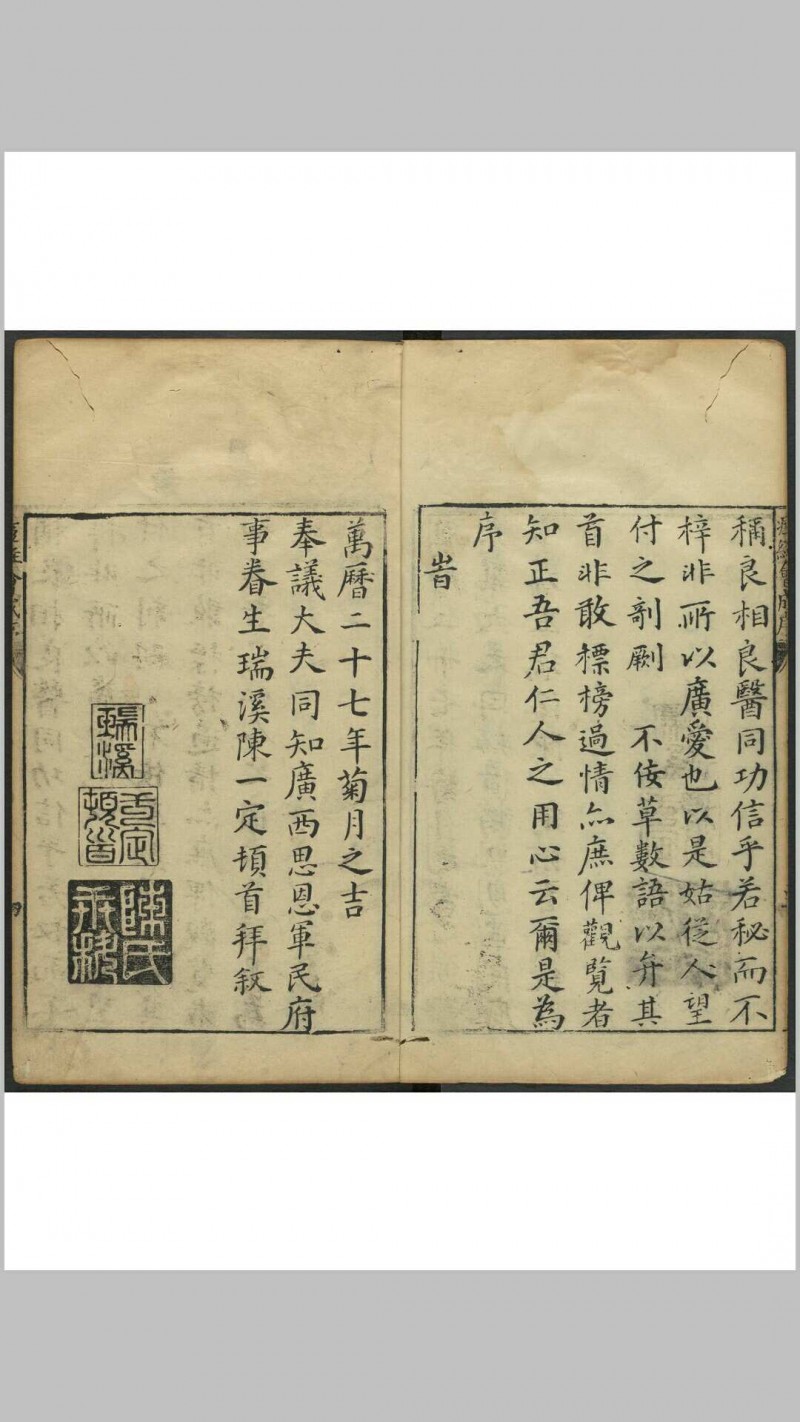 稱良相良醫同功信乎若秘而不
梓非所以廣愛也以是姑從人望
付之剞劂 不佞草數語以弁其
首非敢標榜過情亦庶俾觀覽者
知正吾君仁人之用心云爾是為
序
旹
萬曆二十七年菊月之吉
奉議大夫同知廣西思恩軍民府
事眷生瑞溪陳一定頓首拜敘
瑞溪
陳氏